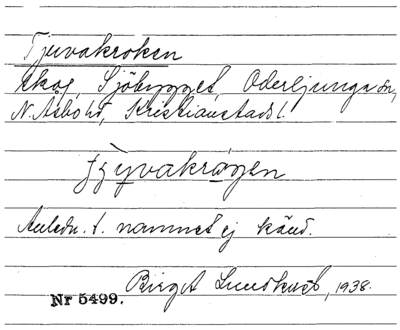 Tjuvakroken
skog, Sjöbygget, Oderljunga sn,
N. Åsbo hd, Kristianstads l.
Anledn. t. namnet ej känd.
Birgit 1938.
Nr 5499.